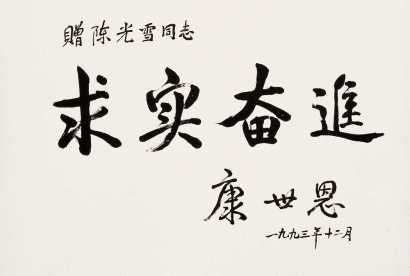 贈陈光雪同志
求实奋進
康世恩
一九九三年十二月